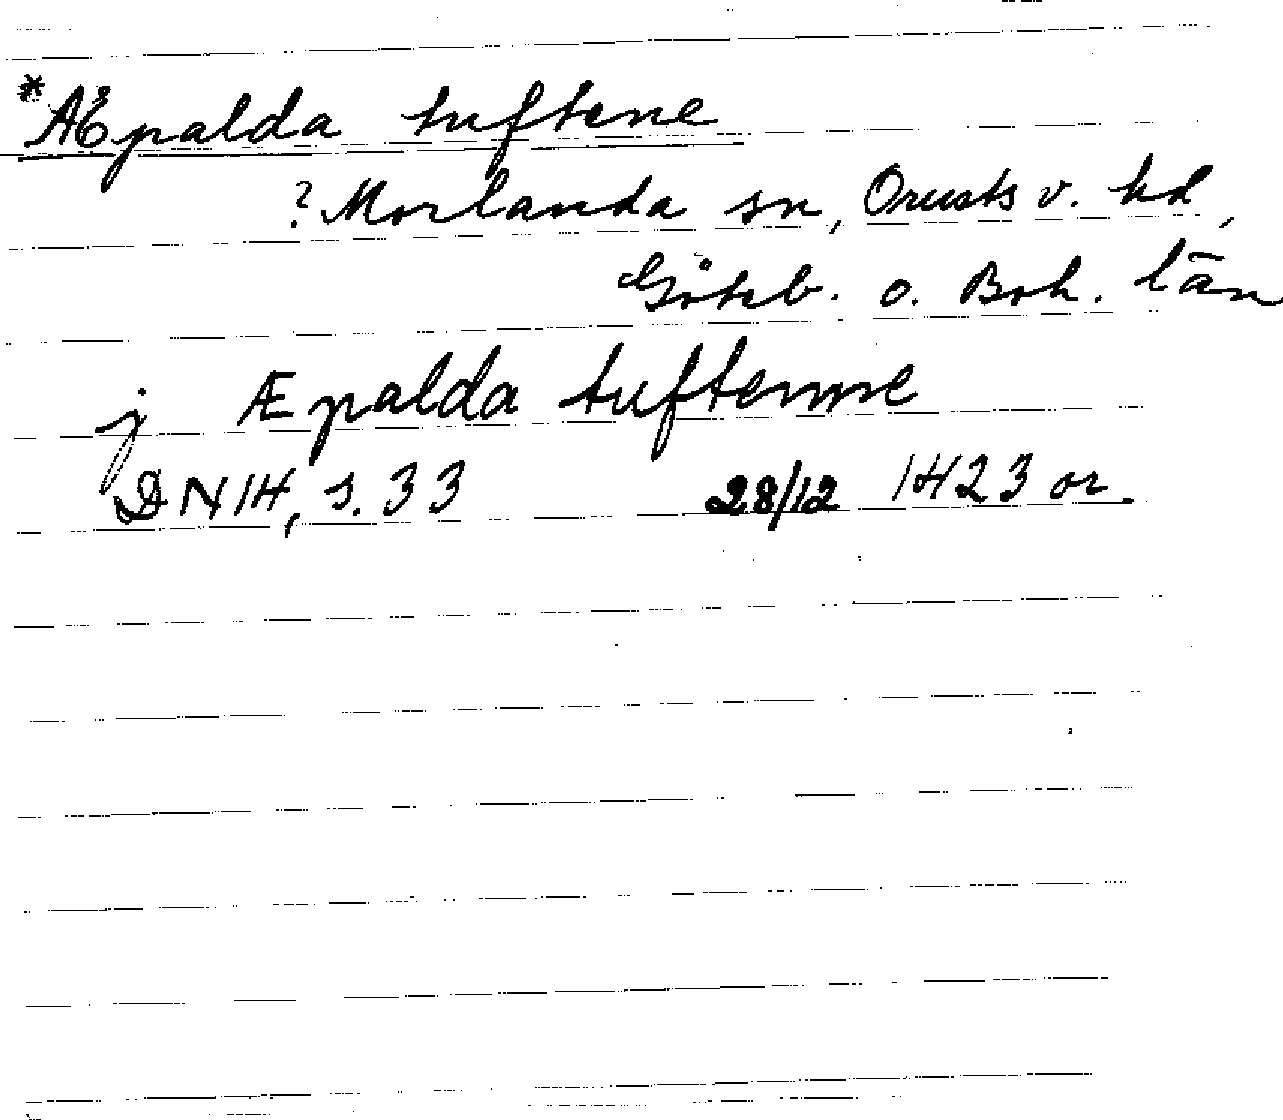 *Æpalda tuftene
? Morlanda sn, Orusts v. hd,
Göteb. o. Boh. län
j Æpalda tuftenne
DN IH, s. 33 28/12 1423 or.